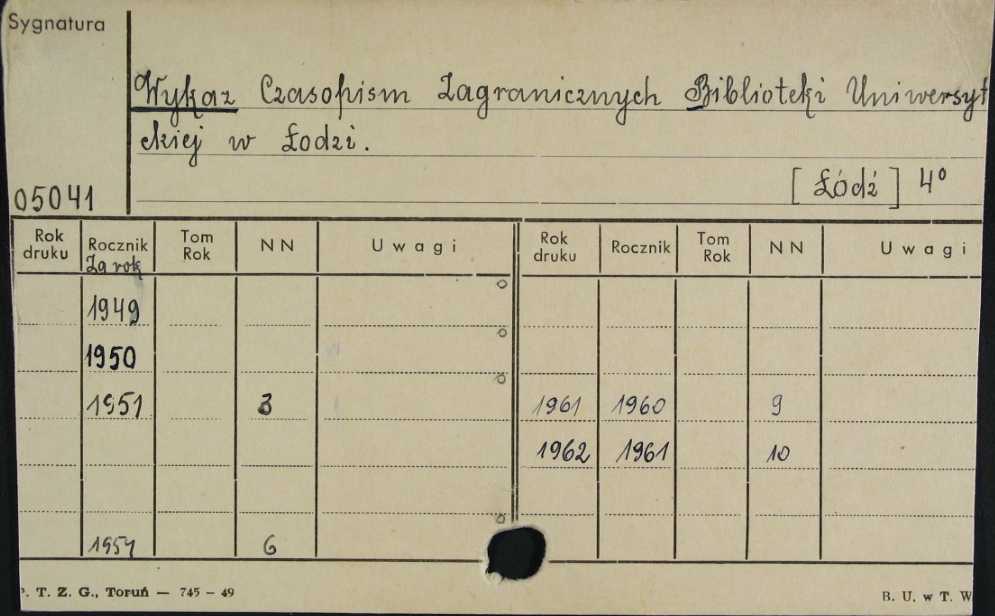 Sygnatura
Wykaz Czasopism Zagranicznych Biblioteki Uniwersyt
eckiej w Łodzi.
05041 [Łódź] 4°
Rok druku Rocznik Tom Rok NN Uwagi Rok druku Rocznik Tom Rok NN Uwagi
Za rok
1949
1950
1951 3 1961 1960 9
1962 1961 10
1954 6
. T. Z. G., Toruń — 745 – 49 B. U. w T. W